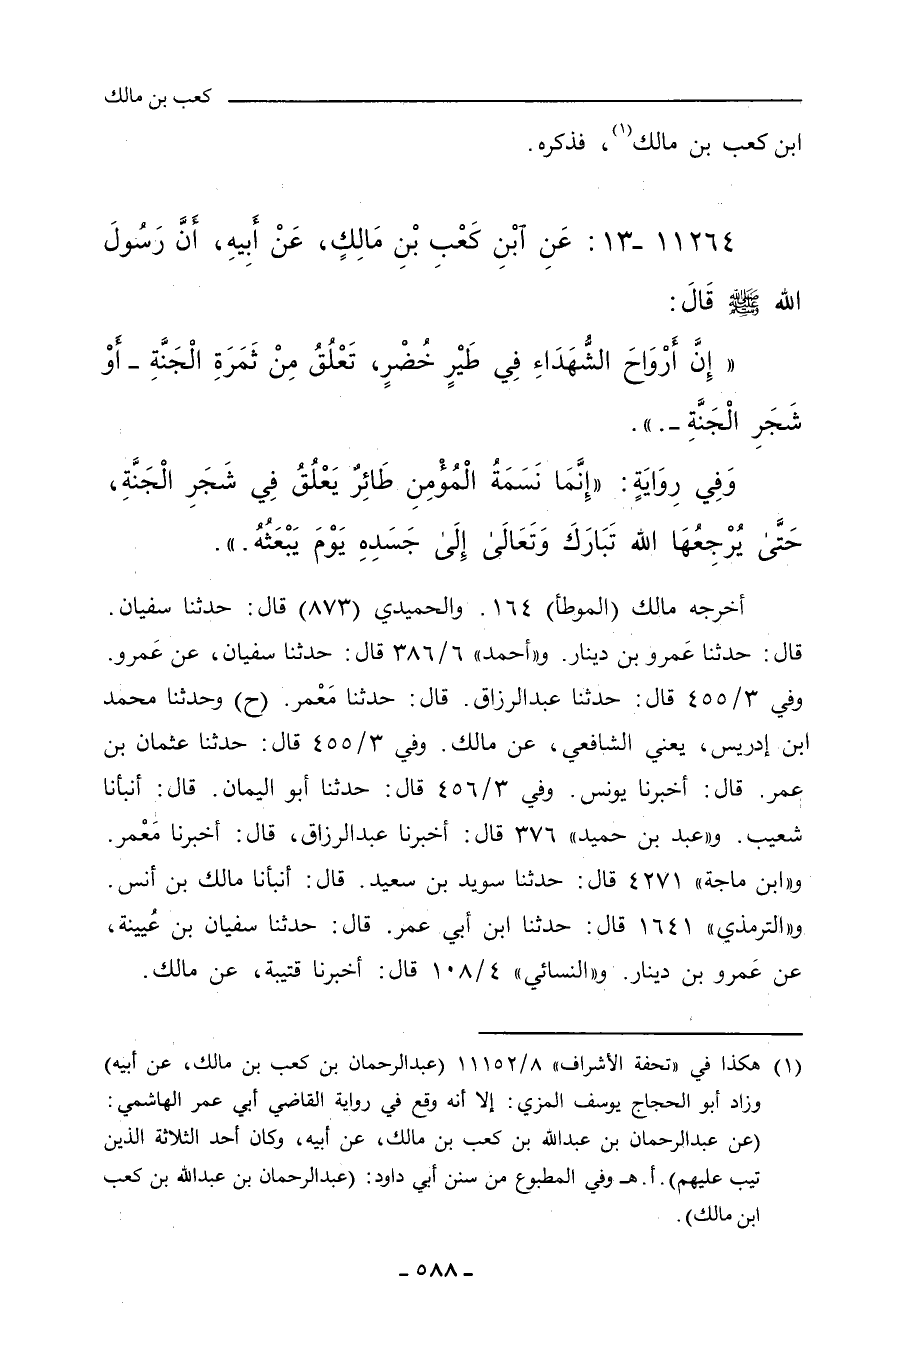 كعب بن مالك
ابن كعب بن مالك(١)، فذكره.
١١٢٦٤ -١٣: عَنِ ٱبْنِ كَعْبِ بْنِ مَالِكٍ، عَنْ أَبِيهِ، أَنَّ رَسُولَ
الله ﷺ قَالَ:
« إِنَّ أَرْوَاحَ الشُّهَدَاءِ فِي طَيْرٍ خُضْرٍ، تَعْلُقُ مِنْ ثَمَرَةِ الْجَنَّةِ - أَوْ
شَجَرِ الْجَنَّةِ -.».
وَفِي رِوَايَةٍ: «إِنَّمَا نَسَمَةُ الْمُؤْمِنِ طَائِرٌ يَعْلُقُ فِي شَجَرِ الْجَنَّةِ،
حَتَّىٰ يُرْجِعُهَا الله تَبَارَكَ وَتَعَالَىٰ إِلَىٰ جَسَدِهِ يَوْمَ يَبْعَثُهُ.».
أخرجه مالك (الموطأ) ١٦٤. والحميدي (٨٧٣) قال: حدثنا سفيان.
قال: حدثنا عَمرو بن دينار. و«أحمد» ٣٨٦/٦ قال: حدثنا سفيان، عن عَمرو.
وفي ٤٥٥/٣ قال: حدثنا عبدالرزاق. قال: حدثنا مَعْمر. (ح) وحدثنا محمد
ابن إدريس، يعني الشافعي، عن مالك. وفي ٤٥٥/٣ قال: حدثنا عثمان بن
عمر. قال: أخبرنا يونس. وفي ٤٥٦/٣ قال: حدثنا أبو اليمان. قال: أنبأنا
شعيب. و«عبد بن حميد» ٣٧٦ قال: أخبرنا عبدالرزاق، قال: أخبرنا مَعْمر.
و«ابن ماجة» ٤٢٧١ قال: حدثنا سويد بن سعيد. قال: أنبأنا مالك بن أنس.
و«الترمذي» ١٦٤١ قال: حدثنا ابن أبي عمر. قال: حدثنا سفيان بن عُيينة،
عن عَمرو بن دينار. و«النسائي» ١٠٨/٤ قال: أخبرنا قتيبة، عن مالك.
(١) هكذا في «تحفة الأشراف» ١١١٥٢/٨ (عبدالرحمان بن كعب بن مالك، عن أبيه)
وزاد أبو الحجاج يوسف المزي: إلا أنه وقع في رواية القاضي أبي عمر الهاشمي:
(عن عبدالرحمان بن عبدالله بن كعب بن مالك، عن أبيه، وكان أحد الثلاثة الذين
تيب عليهم). أ.هـ وفي المطبوع من سنن أبي داود: (عبدالرحمان بن عبدالله بن كعب
ابن مالك).
- ٥٨٨ -